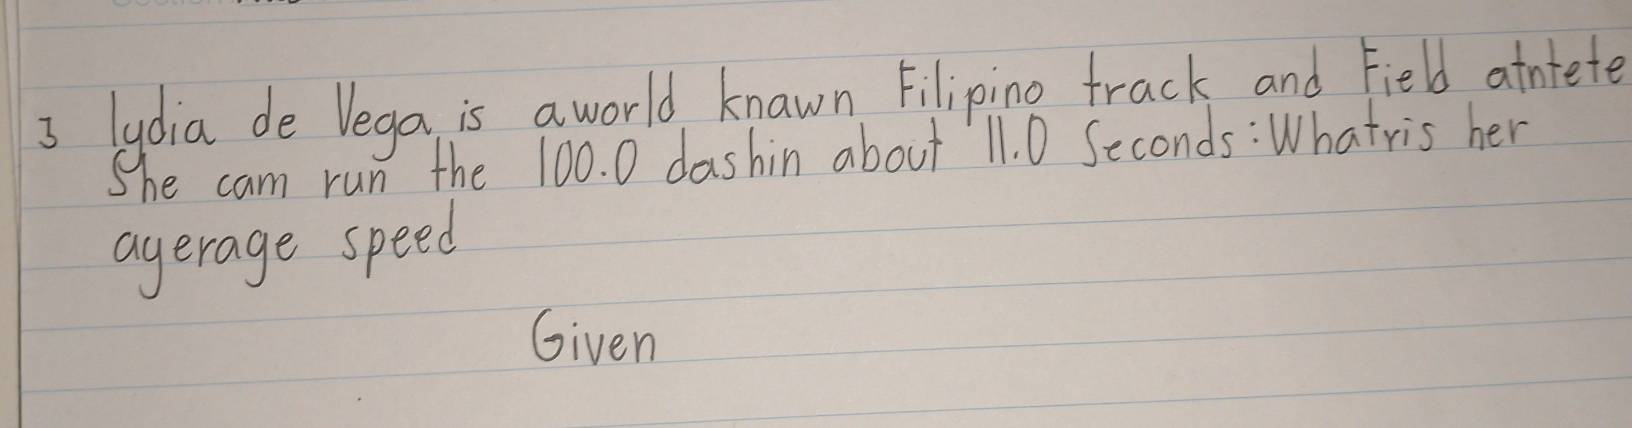 3 lydia de Vega, is aworld knawn Filipino track and Field atntete
She cam run the 100.0 dashin about 11.0 Seconds: Whatris her
ayerage speed
Given